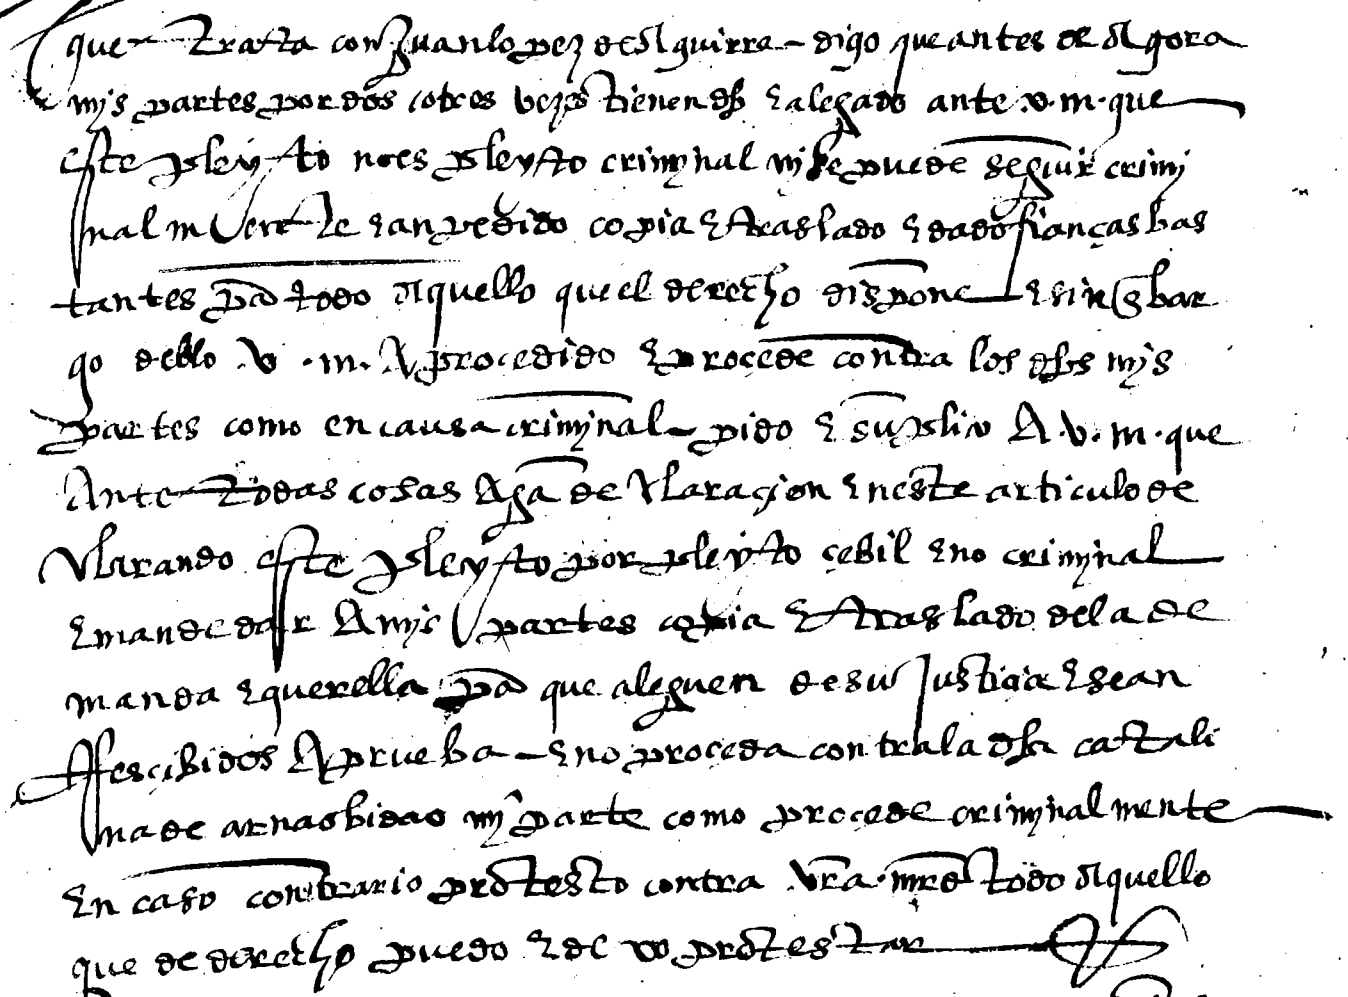 que trata con Juan lopez de Aguirre digo que antes de Agora
mys partes por dos o tres vezes tienen dho e alegado ante v. m. que
este pleyto no es pleyto crimynal ny se puede seguir crimy
nal e an pedido copia e traslado e dado fianças bas
tantes pa todo Aquello que el derecho dispone e sin enbar
go dello v. m. A procedido e proçede contra los dhos mys
partes como en causa crimynal pido e suplico A v. m. que
Ante todas cosas Aga declaraçion en este articulo de
clarando este pleyto por pleyto çebil e no crimynal
e mande dar A mys partes copia e traslado de la de
manda e querella pa que aleguen de su justicia e sean
Resçibidos A prueba e no proçeda contra la dha catali
na de arnasbidao my parte como proçede crimynalmente
En caso contrario protesto contra vra mrd todo Aquello
que de derecho puedo e de vo protestar